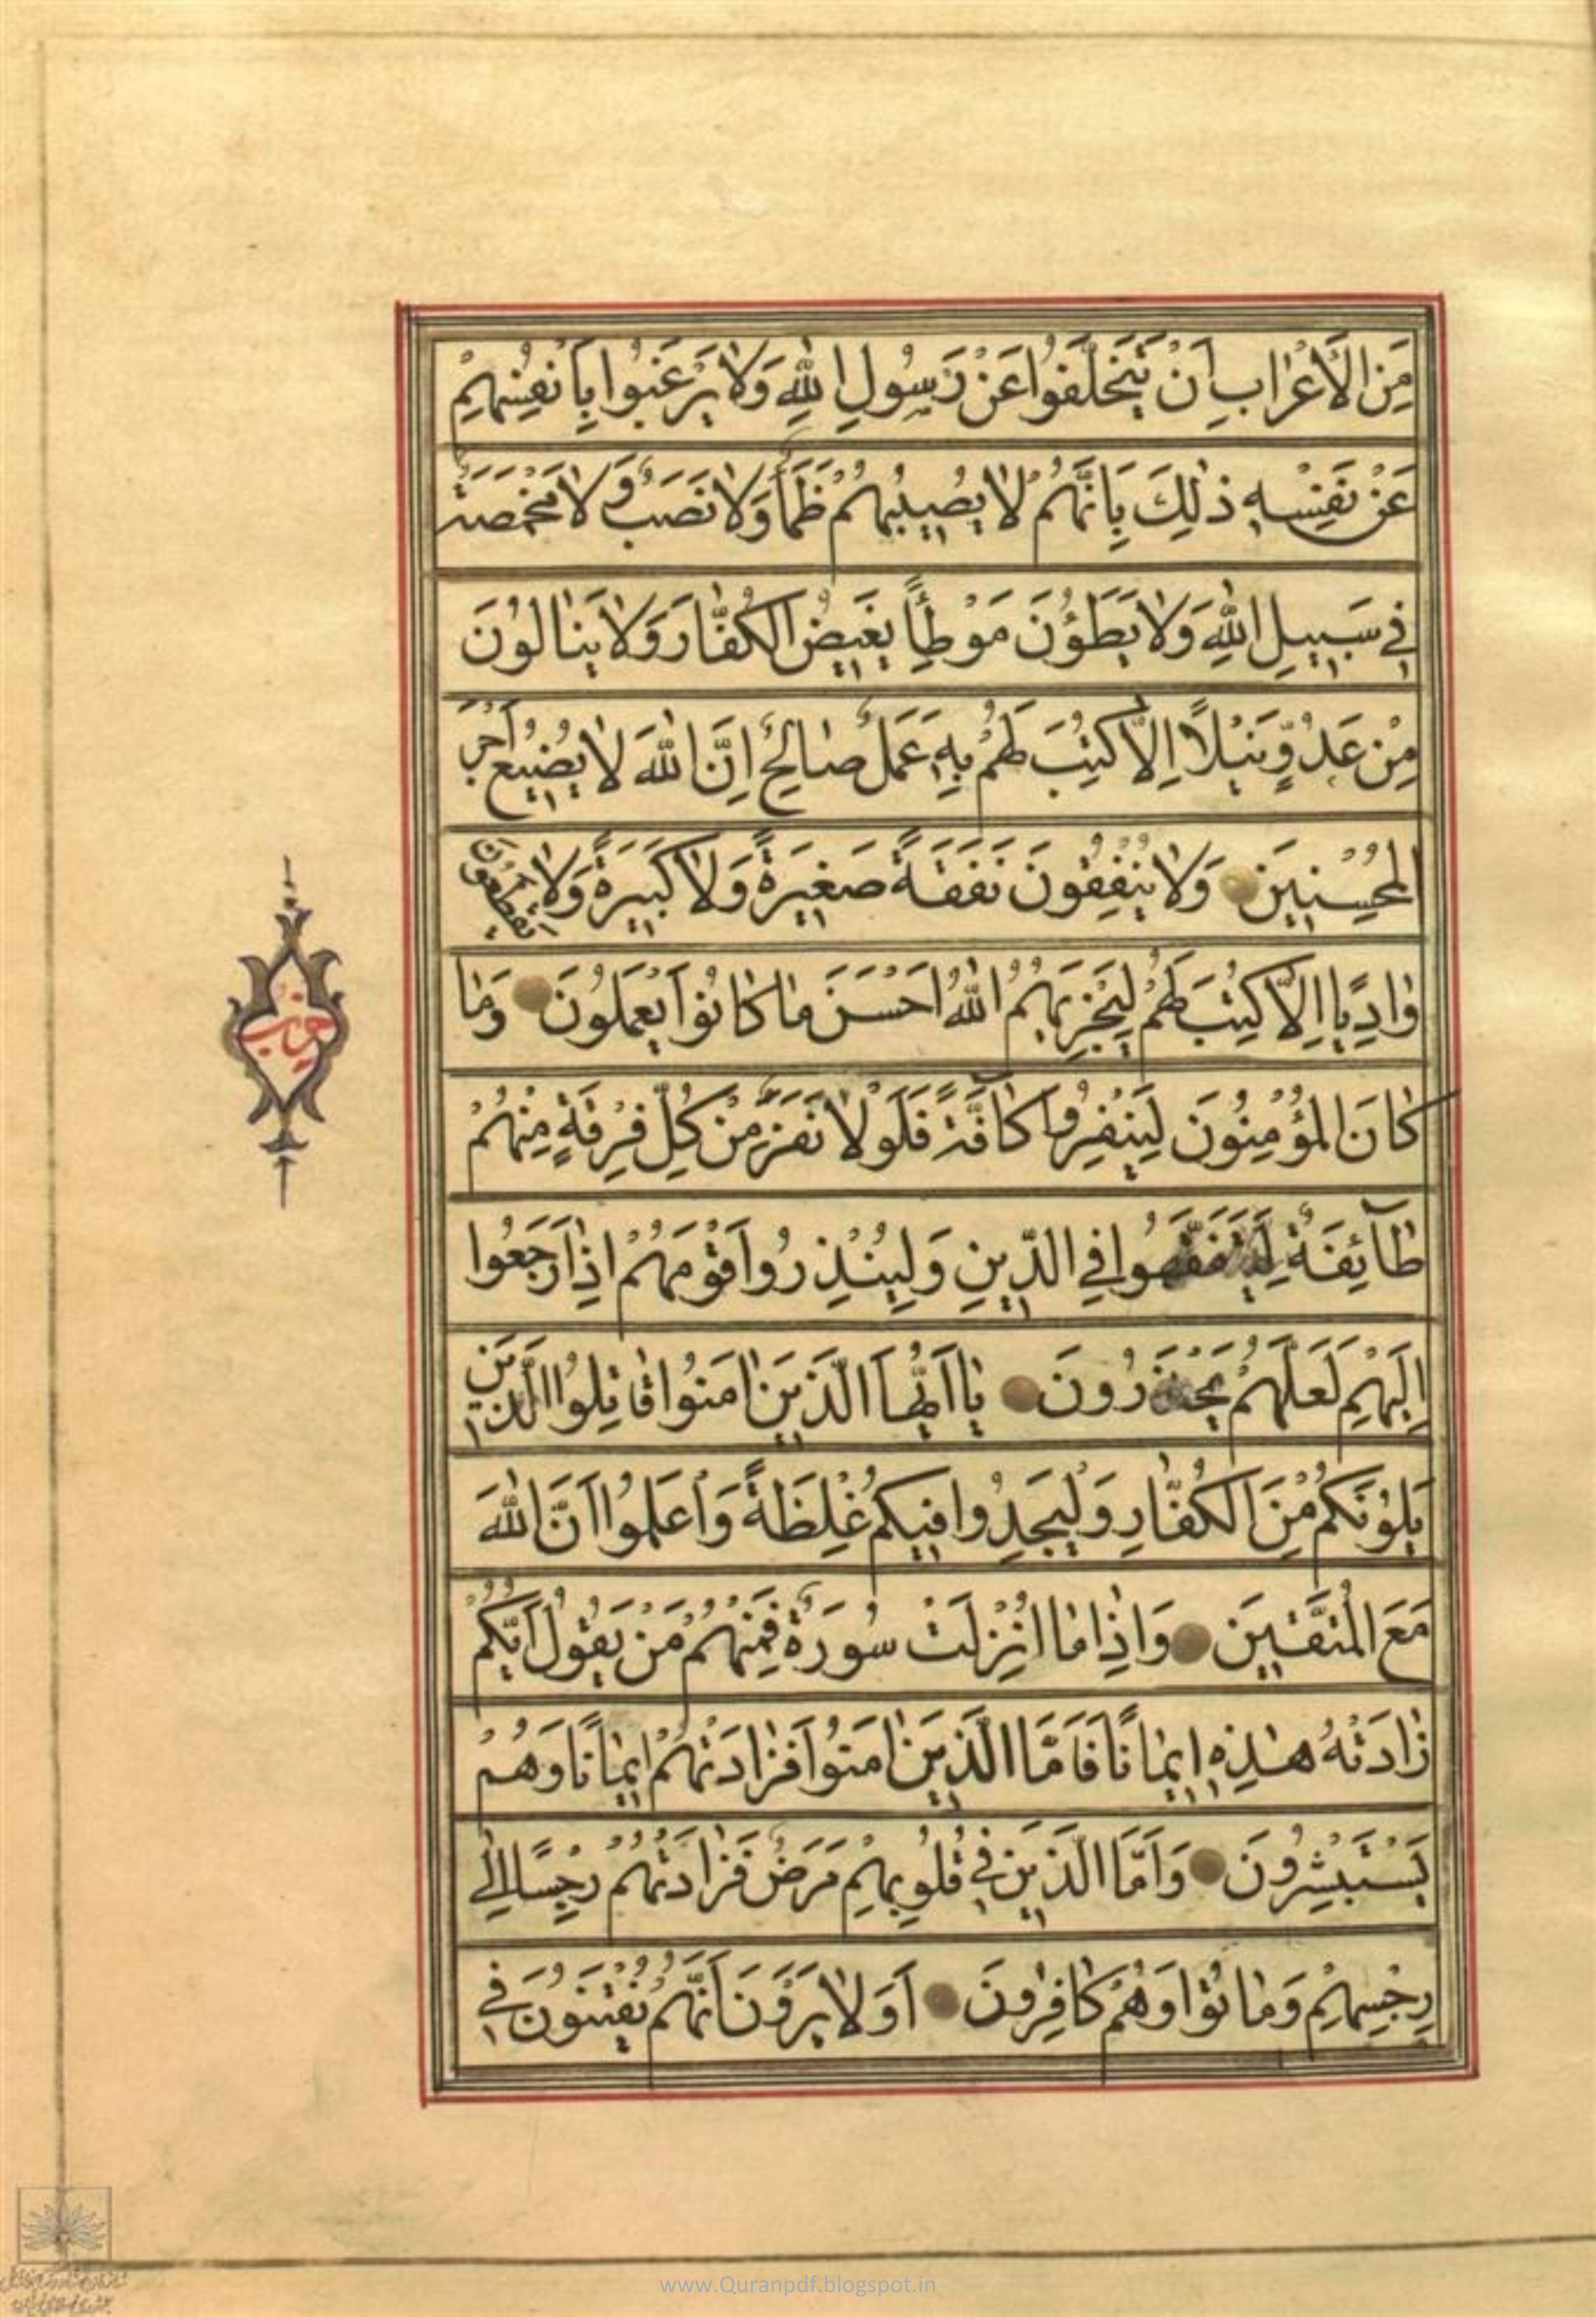 مِنَ الْأَعْرَابِ اَنْ يَتَخَلَّفُوا عَنْ رَسُولِ اللّٰهِ وَلَا يَرْغَبُوا بِاَنْفُسِهِمْ
عَنْ نَفْسِهٖ ذٰلِكَ بِاَنَّهُمْ لَا يُصِيبُهُمْ ظَمَأٌ وَلَا نَصَبٌ وَلَا مَخْمَصَةٌ
فِي سَبِيلِ اللّٰهِ وَلَا يَطَؤُنَ مَوْطِأً يَغِيضُ الْكُفَّارَ وَلَا يَنَالُونَ
مِنْ عَدُوٍّ نَيْلًا اِلَّا كُتِبَ لَهُمْ بِهٖ عَمَلٌ صَالِحٌ اِنَّ اللّٰهَ لَا يُضِيعُ اَجْرَ
الْمُحْسِنِينَ وَلَا يُنْفِقُونَ نَفَقَةً صَغِيرَةً وَلَا كَبِيرَةً وَلَا يَقْطَعُونَ
وَادِيًا اِلَّا كُتِبَ لَهُمْ لِيَجْزِيَهُمُ اللّٰهُ اَحْسَنَ مَا كَانُوا يَعْمَلُونَ وَمَا
كَانَ الْمُؤْمِنُونَ لِيَنْفِرُوا كَافَّةً فَلَوْلَا نَفَرَ مِنْ كُلِّ فِرْقَةٍ مِنْهُمْ
طَآئِفَةٌ لِيَتَفَقَّهُوا فِي الدِّينِ وَلِيُنْذِرُوا قَوْمَهُمْ اِذَا رَجَعُوا
اِلَيْهِمْ لَعَلَّهُمْ يَحْذَرُونَ يَا اَيُّهَا الَّذِينَ اٰمَنُوا قَاتِلُوا الَّذِينَ
يَلُونَكُمْ مِنَ الْكُفَّارِ وَلْيَجِدُوا فِيكُمْ غِلْظَةً وَاعْلَمُوا اَنَّ اللّٰهَ
مَعَ الْمُتَّقِينَ وَاِذَا مَا اُنْزِلَتْ سُورَةٌ فَمِنْهُمْ مَنْ يَقُولُ اَيُّكُمْ
زَادَتْهُ هٰذِهٖ اِيمَانًا فَاَمَّا الَّذِينَ اٰمَنُوا فَزَادَتْهُمْ اِيمَانًا وَهُمْ
يَسْتَبْشِرُونَ وَاَمَّا الَّذِينَ فِي قُلُوبِهِمْ مَرَضٌ فَزَادَتْهُمْ رِجْسًا اِلٰى
رِجْسِهِمْ وَمَاتُوا وَهُمْ كَافِرُونَ اَوَلَا يَرَوْنَ اَنَّهُمْ يُفْتَنُونَ فِي
حزب
www.Quranpdf.blogspot.in